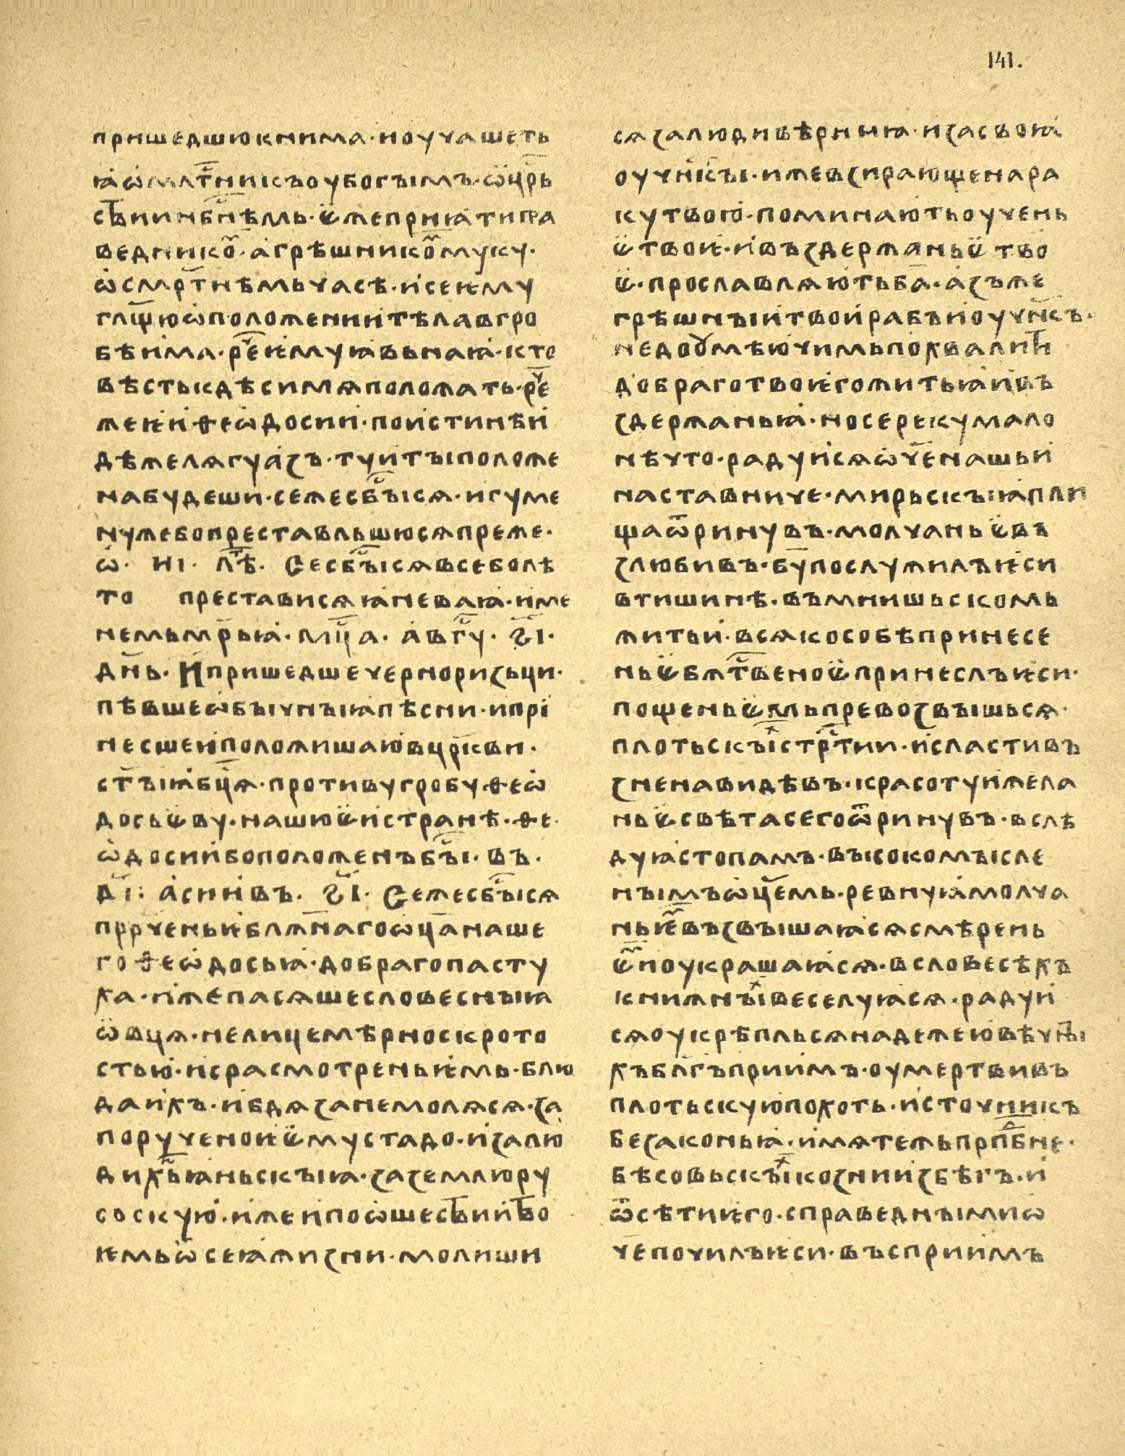 141.
пришедшюкнима·ноуꙗшеть
ꙗѡмлⷭ҇тникъоубогъімъ·ѡц҃рь
ствиинбⷭ҇нѣмь·ѥжепрнꙗтипра
веднико·агрѣшникомуку·
ѡсмрⷮнѣмьчасѣ·исеѥму
гл҃щюѡположениитѣлавгро
бѣима·рⷱ҇еѥмуꙗвьнаꙗ·кто
вѣстькдѣсимѧположать·рⷱ҇е
жеѥиѳеѡдосии·поистинѣи
дѣжелѧгуазъ·туитъіположе
набудеши·сежесбъⷭ҇ісѧ·игуме
нужебопреставльшюсѧпреже·
ѡ· ні· лѣⷮ· Сесбъⷭ҇ісѧвсеболѣ
то преставиcѧꙗневаꙗ·име
немьмр҃ьꙗ·мц҃а·авгу·ѕ҃і·
дн҃ь·Ипришедшечерноризьци·
пѣвшеѡбъічнъіꙗпѣсни·ипрі
несшеиположишаювцр҃кви·
ст҃ъіꙗбц҃ѧ·противугробуѳеѡ
досьѥву·нашюѥистранѣ·ѳе
ѡдосиибоположенъбъⷭ҇і·въ·
д҃і:асиивъ·ѕ҃і·Сежесбъⷭ҇ісѧ
прр҃ченьѥблж҃нагоѡц҃анаше
гоѳеѡдосьꙗ·добрагопасту
ха·ижепасѧшесловеснъіꙗ
ѡвцѧ·нелицемѣрноскрото
стью·исрасмотреньѥмь·блю
даихъ·ибдѧзанемолѧсѧ·за
порученоѥѥмустадо·изалю
дихрⷭ҇ьꙗньскъіꙗ·заземлюру
соскую·ижеипоѡшествиитво
ѥмьѡсеꙗжизни·молиши
сѧзалюдивѣрнъіꙗ·изасвоꙗ
оучн҃къі·ижевзирающенара
кутвою·поминаютьоучень
ѥтвоѥ·ивъздержаньѥтво
ѥ·прославлѧютьба҃·азъже
грѣшнъіитвоирабъиоучн҃къ·
недоумѣючимьпохвалити
добраготвоѥгожитьꙗивъ
здержаньꙗ·носерекумало
нѣчто·радуисѧѡч҃енашьи
наставниче·мирьскъіꙗпли
щаѿринувъ·молчаньѥвъ
злюбивъ·бу҃послужилъѥси
втишинѣ·въмнишьскомь
житьи·всѧкособѣпринесе
ньѥбжⷭ҇твеноѥпринеслъѥси·
пощеньѥмьпревозвъішьсѧ·
плотьскъіхстрⷭ҇тии·исластивъ
зненавидѣвъ·красотуижела
ньѥсвѣтасегоѿринувъ·вслѣ
дуꙗстопамъ·въісокомъісле
нъімъѡц҃емь·ревнуꙗмолча
ньѥмьвъзвъішаꙗсѧсмѣрень
ѥмьпоукрашаꙗсѧ·всловесѣхъ
книжнъіхвеселуꙗсѧ·радуи
сѧоукрѣпльсѧнадежеювѣчнъі
хъблг҃ъприимъ·оумертвивъ
плотьскуюпохоть·источникъ
безаконьꙗ·имѧтежьпрпⷣбне·
бѣсовьскъіхкознииизбѣгъ·и
ѿсѣтиѥго·справеднъімиѡ
ч҃епочилъѥси·въсприимъ